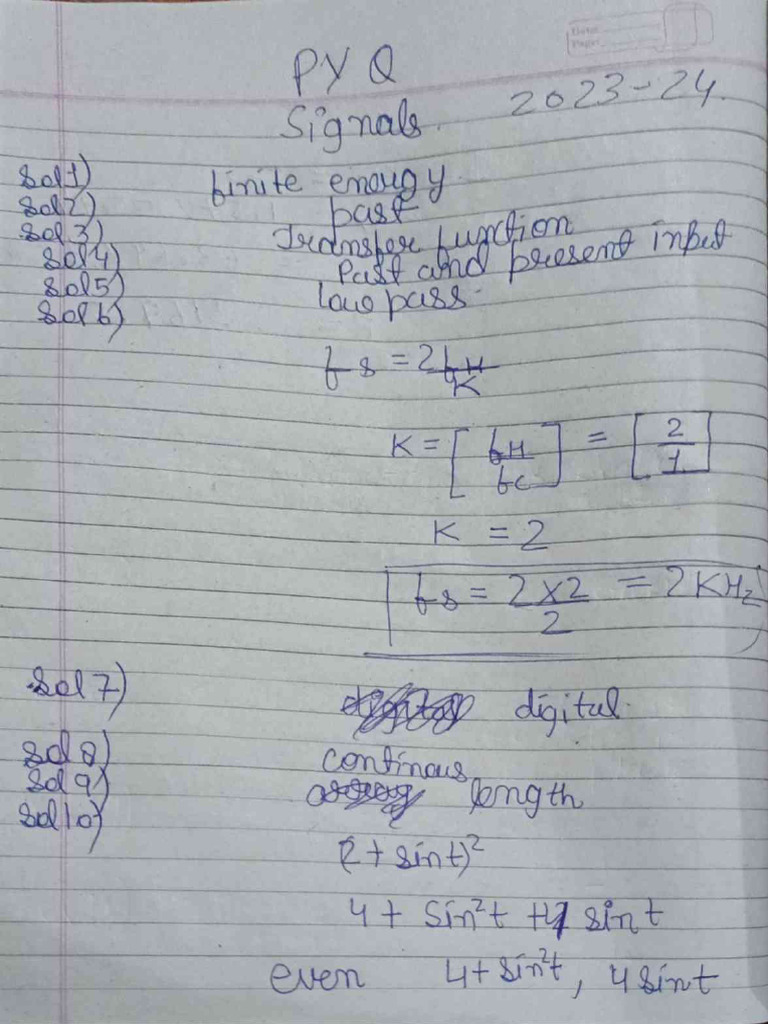 Date:
Page:
PYQ
2023-24
Signals
Sol1) finite energy
Sol2) past
Sol3) Transfer function
Sol4) Past and present input
Sol5) low pass
Sol6)
fs = 2fH/K
K = [fH/fc] = [2/1]
K = 2
fs = 2X2/2 = 2KHz
Sol7) digital
Sol8) continous
Sol9) length
Sol10)
(2 + sint)²
4 + sin²t + 4 sint
even 4+sin²t, 4sint